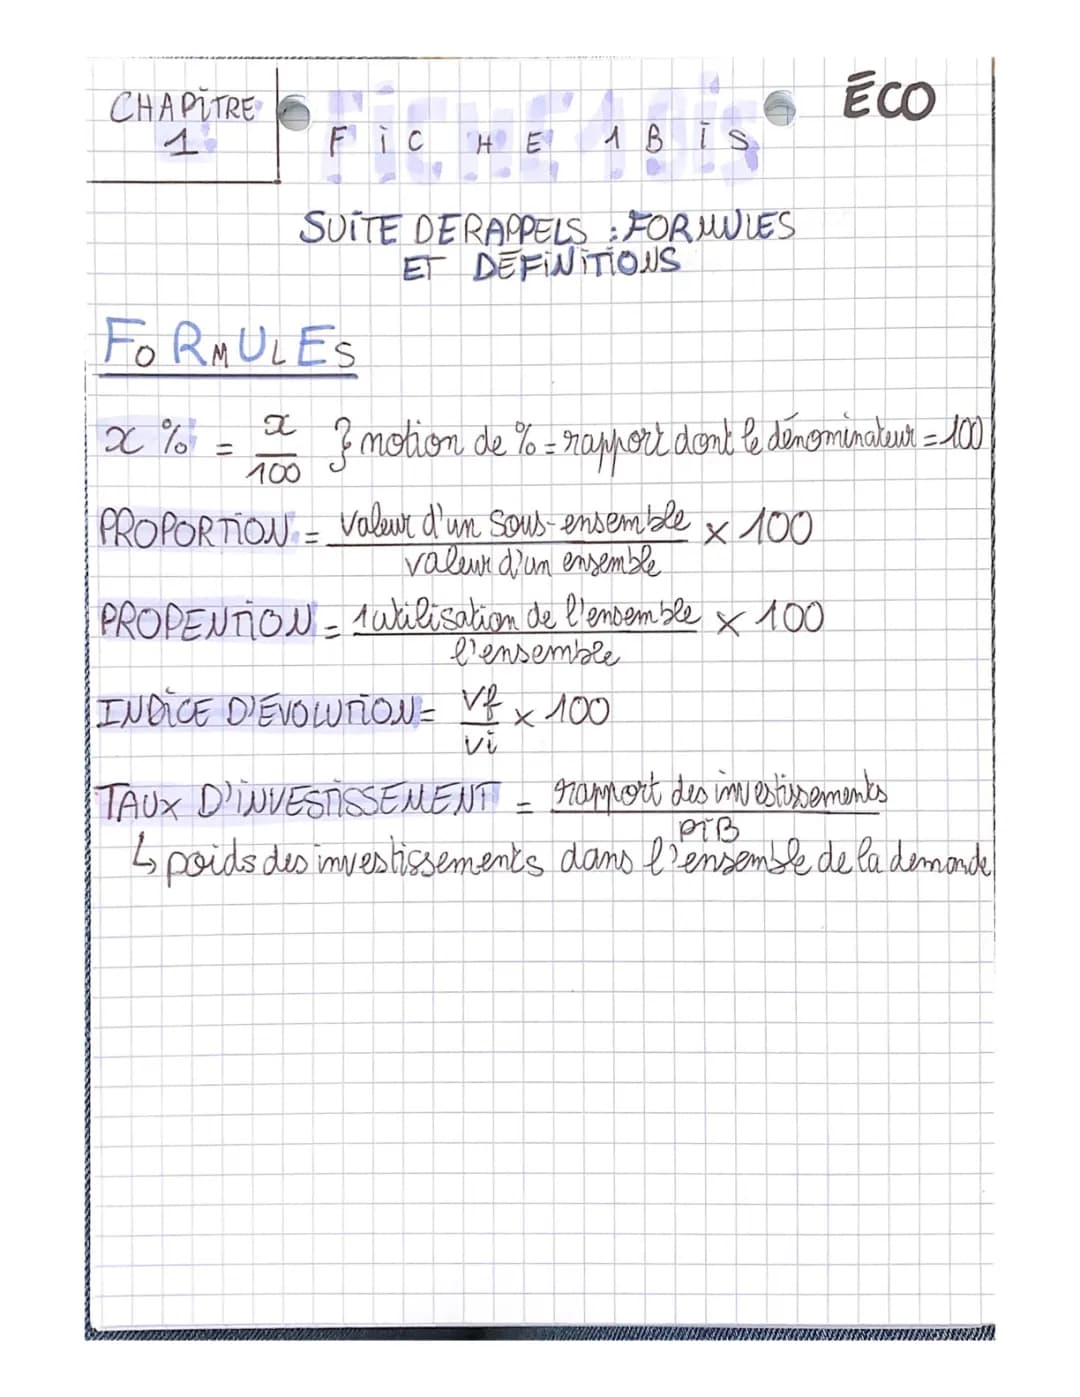 CHAPITRE
1
FICHE 1 BIS
ÉCO
SUITE DE RAPPELS : FORMULES
ET DÉFINITIONS
FORMULES
x % = x/100 } notion de % = rapport dont le dénominateur = 100
PROPORTION = valeur d'un sous-ensemble / valeur d'un ensemble × 100
PROPENTION = 1 utilisation de l'ensemble / l'ensemble × 100
INDICE D'ÉVOLUTION = vf / vi × 100
TAUX D'INVESTISSEMENT = rapport des investissements / PIB
↳ poids des investissements dans l'ensemble de la demande